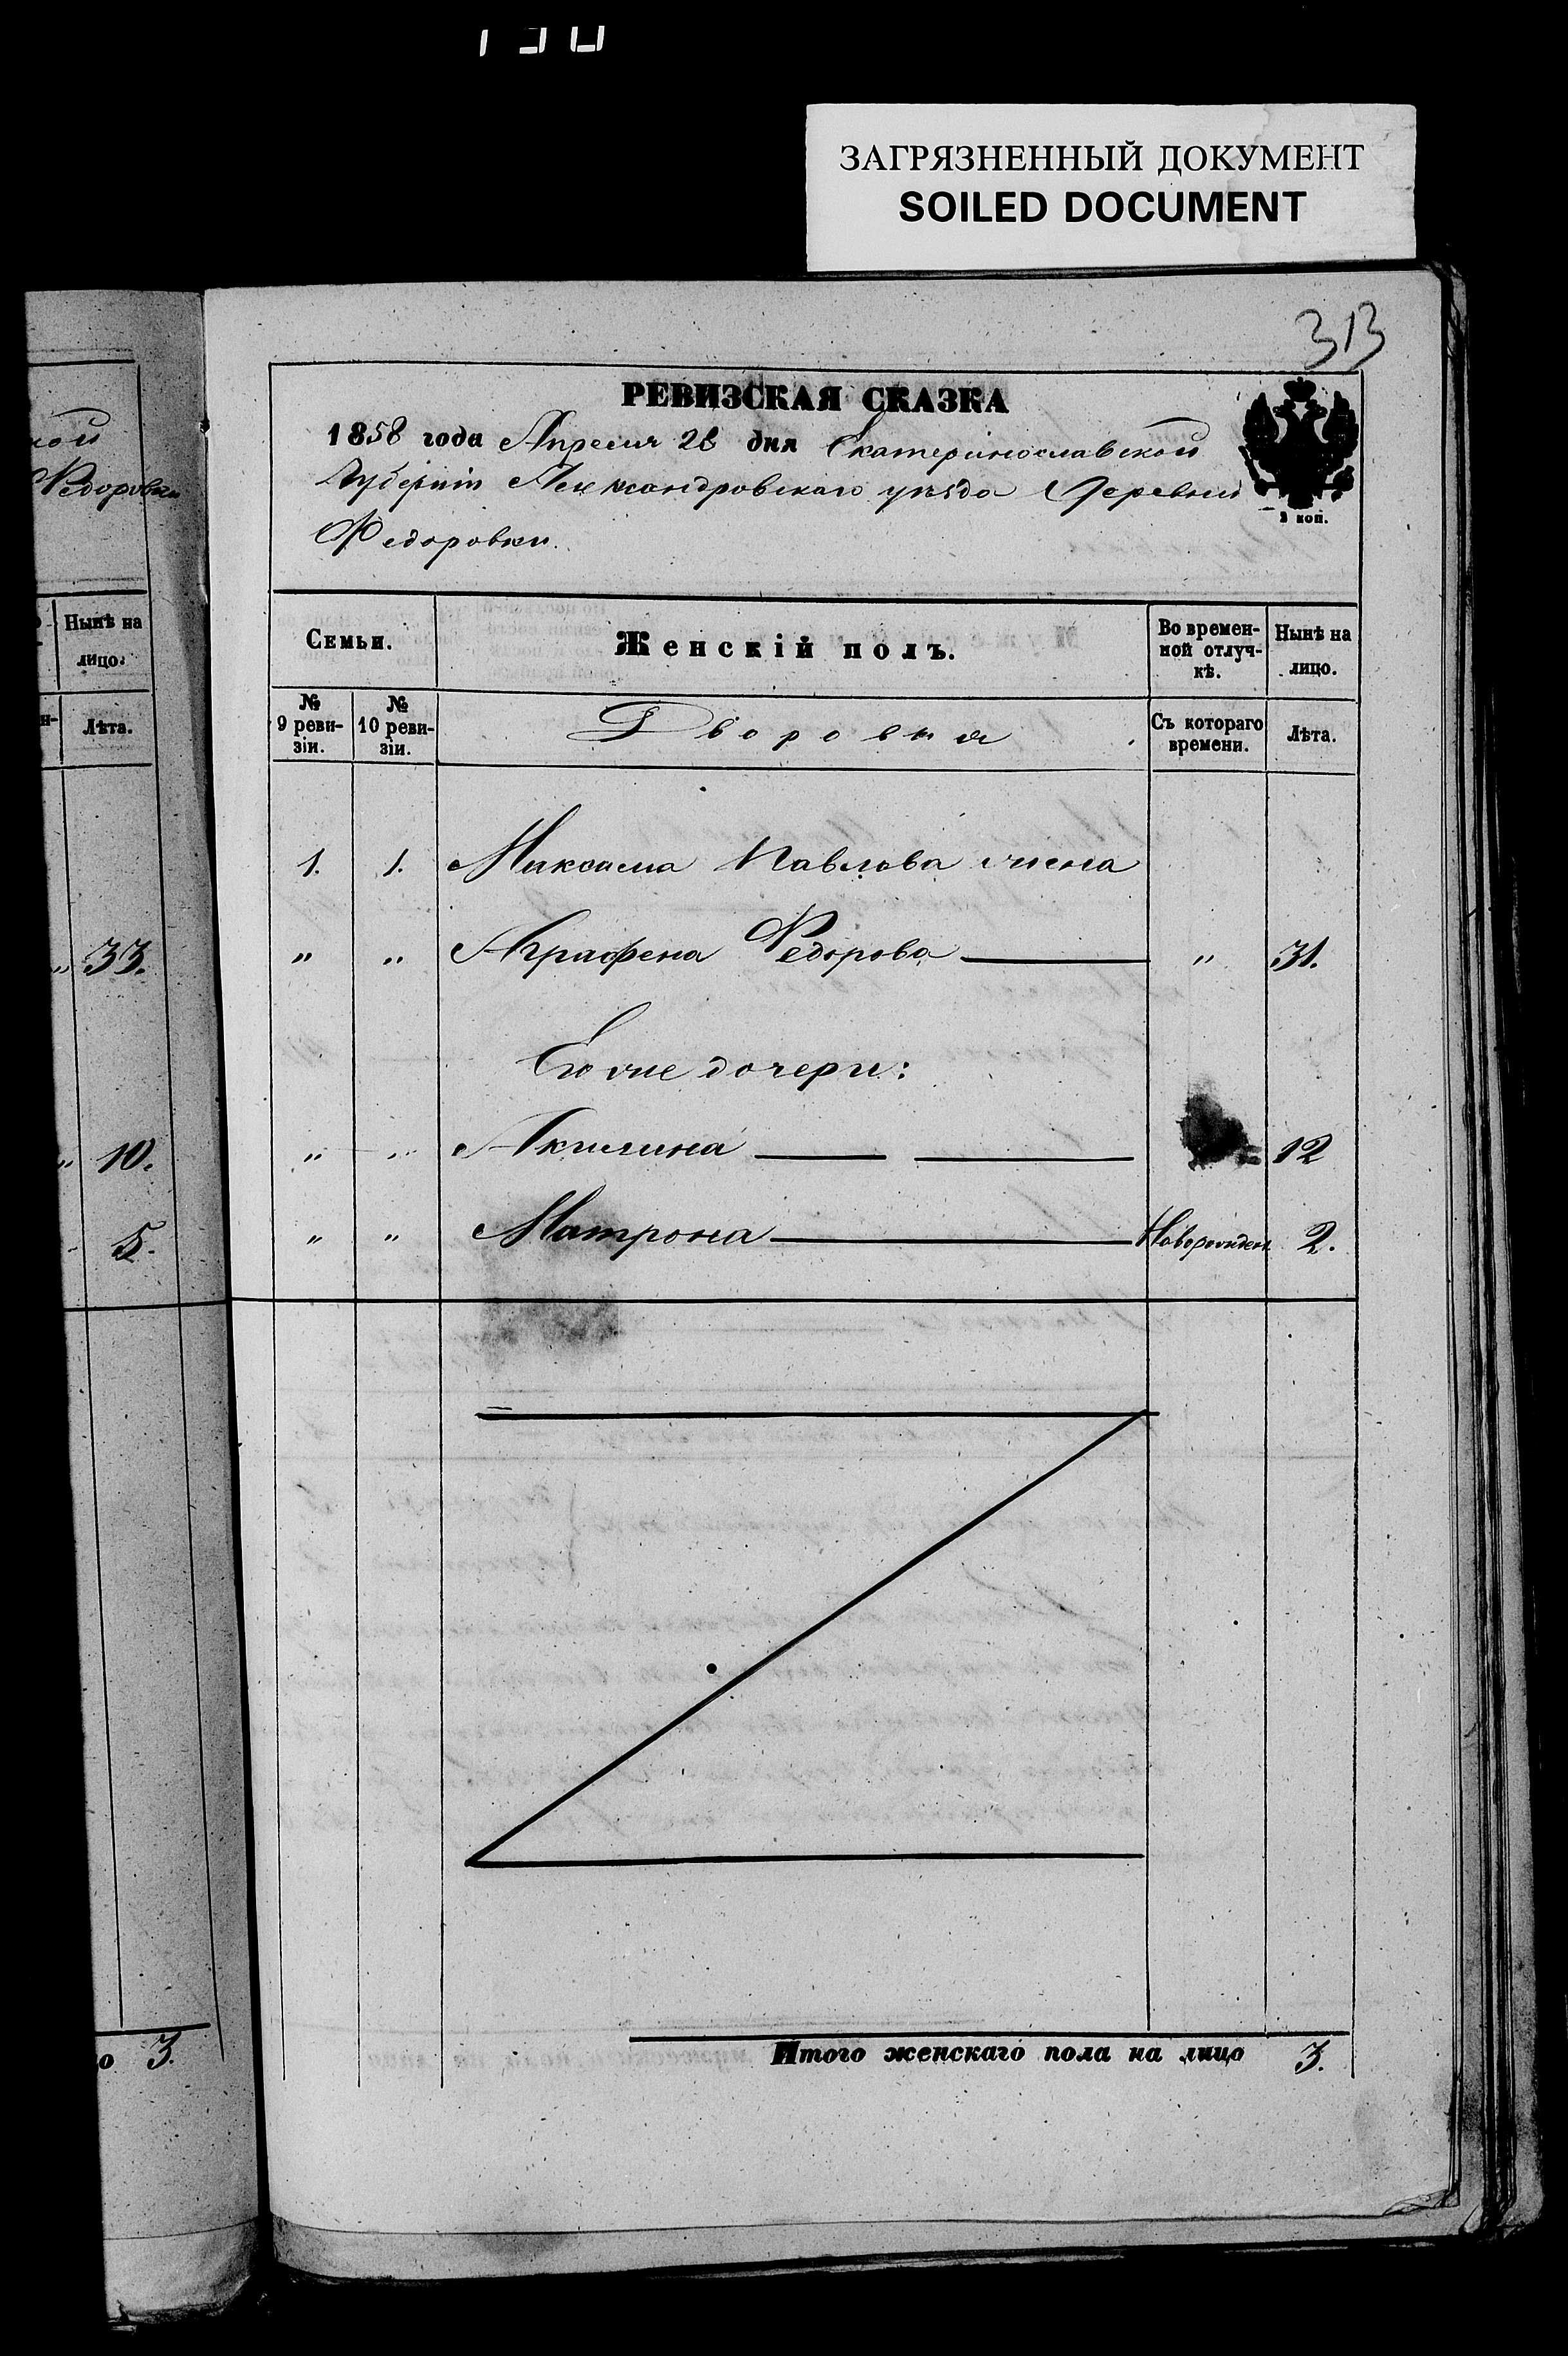 ЗАГРЯЗНЕННЫЙ ДОКУМЕНТ
SOILED DOCUMENT
кой
Федоровки
Нынѣ на
лицо.
Лѣта.
„ 33.
„ 10.
5.
о 3.
313
РЕВИЗСКАЯ СКАЗКА
1858 года Апреля 28 дня Екатеринославской
Губерніи Александровскаго уѣзда Деревни
Федоровки.
2 коп.
Семьи. Женскій полъ. Во времен-ной отлуч-кѣ. Нынѣ на лицо.
№ 9 реви-зіи. № 10 реви-зіи. Дворовыя Съ котораго времени. Лѣта.
1. 1. Максима Павлова жена
„ „ Аграфена Федорова „ 31.
Его же дочери:
„ „ Акилина 12
„ „ Матрона Новорожден. 2.
Итого женскаго пола на лицо 3.